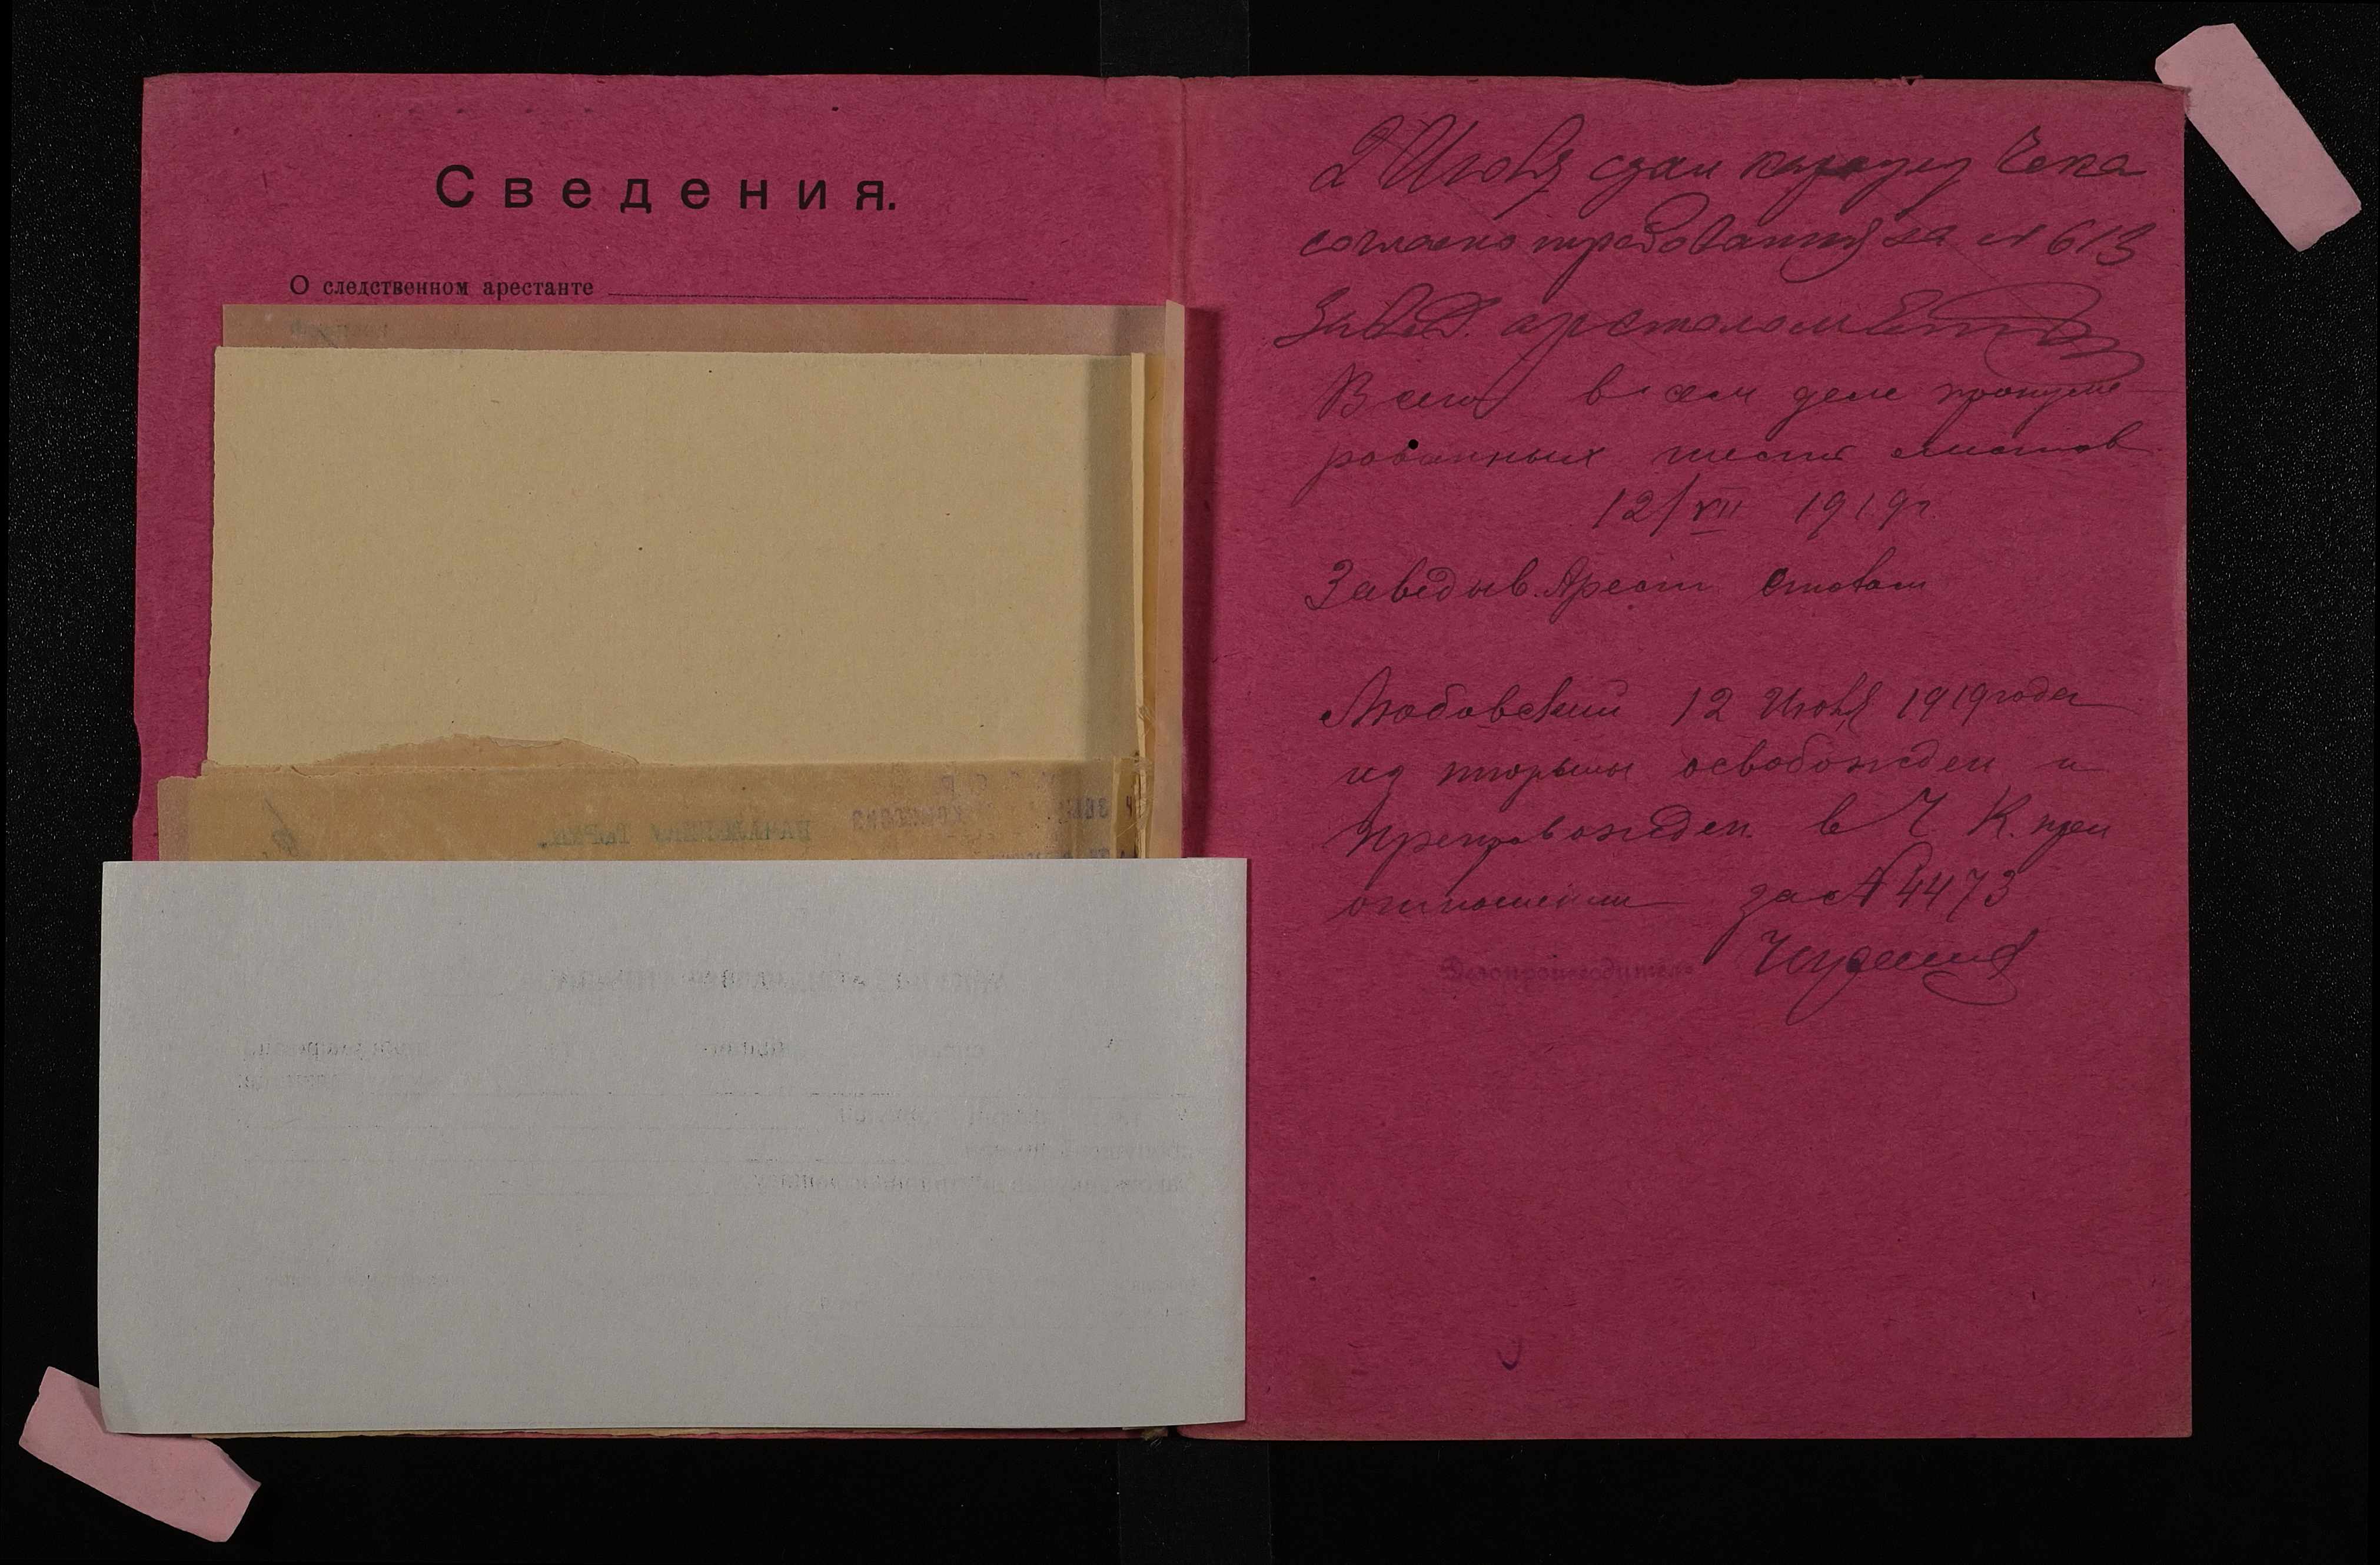 Сведения.
О следственном арестанте
НАЧАЛЬНИКУ ТЮРЬМЫ.
2 Июля сдал караулу Чека
согласно требования за № 613
Завед. арстолом
Всего в сем деле пронуме-
рованных шесть листов
12/VII 1919г.
Заведыв. Арест столом
Любовский 12 Июля 1919 года
из тюрьмы освобожден и
препровожден в Ч. К. при
отношении за № 4473
Делопроизводитель